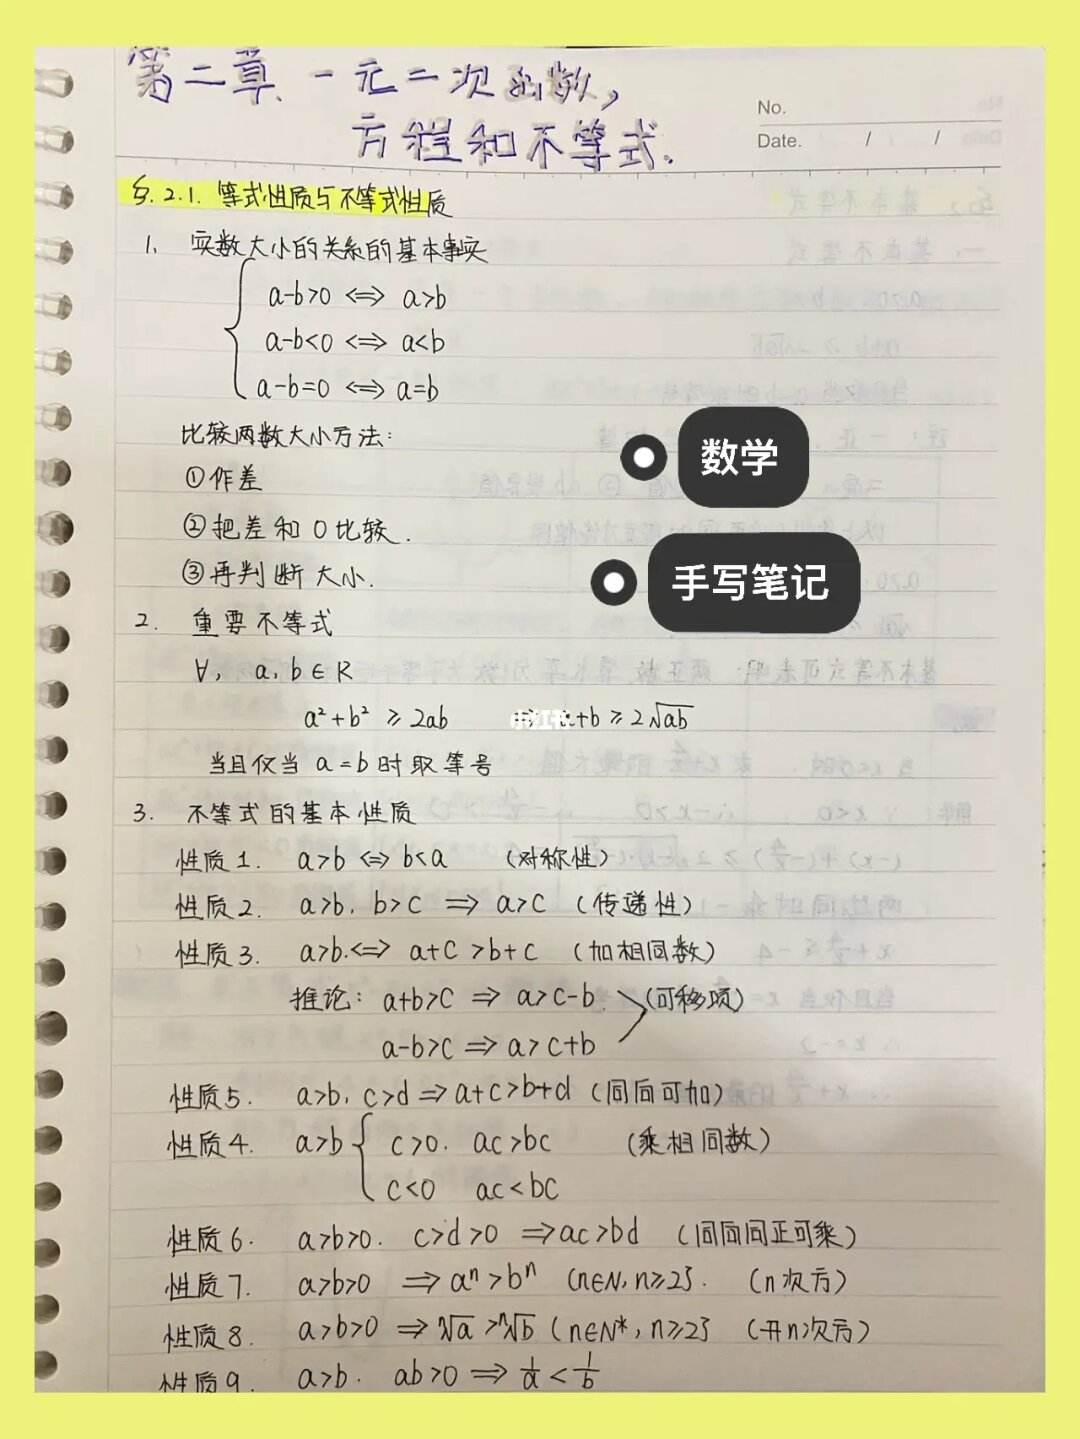 第二章、一元二次函数,
方程和不等式.
No.
Date. / /
§.2.1. 等式性质与不等式性质
1、 实数大小的关系的基本事实
a-b>0 ⟺ a>b
a-b<0 ⟺ a<b
a-b=0 ⟺ a=b
比较两数大小方法:
①作差
数学
②把差和0比较.
③再判断大小.
手写笔记
2. 重要不等式
∀, a, b∈R
a²+b² ≥ 2ab a+b ≥ 2√ab
当且仅当 a=b 时取等号
3. 不等式的基本性质
性质1. a>b ⟺ b<a (对称性)
性质2. a>b, b>c ⟹ a>c (传递性)
性质3. a>b ⟺ a+c>b+c (加相同数)
推论: a+b>c ⟹ a>c-b (可移项)
a-b>c ⟹ a>c+b
性质5. a>b, c>d ⟹ a+c>b+d (同向可加)
性质4. a>b { c>0. ac>bc (乘相同数)
c<0 ac<bc
性质6. a>b>0. c>d>0 ⟹ ac>bd (同向同正可乘)
性质7. a>b>0 ⟹ aⁿ>bⁿ (n∈N, n≥2}. (n次方)
性质8. a>b>0 ⟹ ⁿ√a > ⁿ√b (n∈N*, n≥2} (开n次方)
性质9. a>b. ab>0 ⟹ 1/a < 1/b